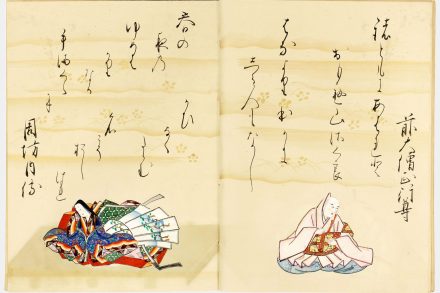 前大僧正行尊
諸ともにあはれと
おもへ山さくら
はなよりほかに
しる人もなし
春の
夜乃
ゆめは
かり
なる
手まくら
に
かひ
なく
たゝむ
名
こそ
をし
けれ
周防内侍